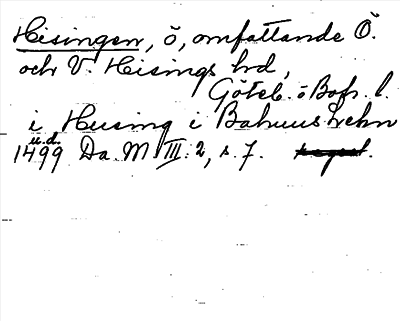 Hisingen, ö, omfattande Ö.
och V. Hisings hd,
Göteb. o Bohs. l.
i Heising i Bahuus Lehn
u.d.
1499 Da. M III: 2, s. 7.